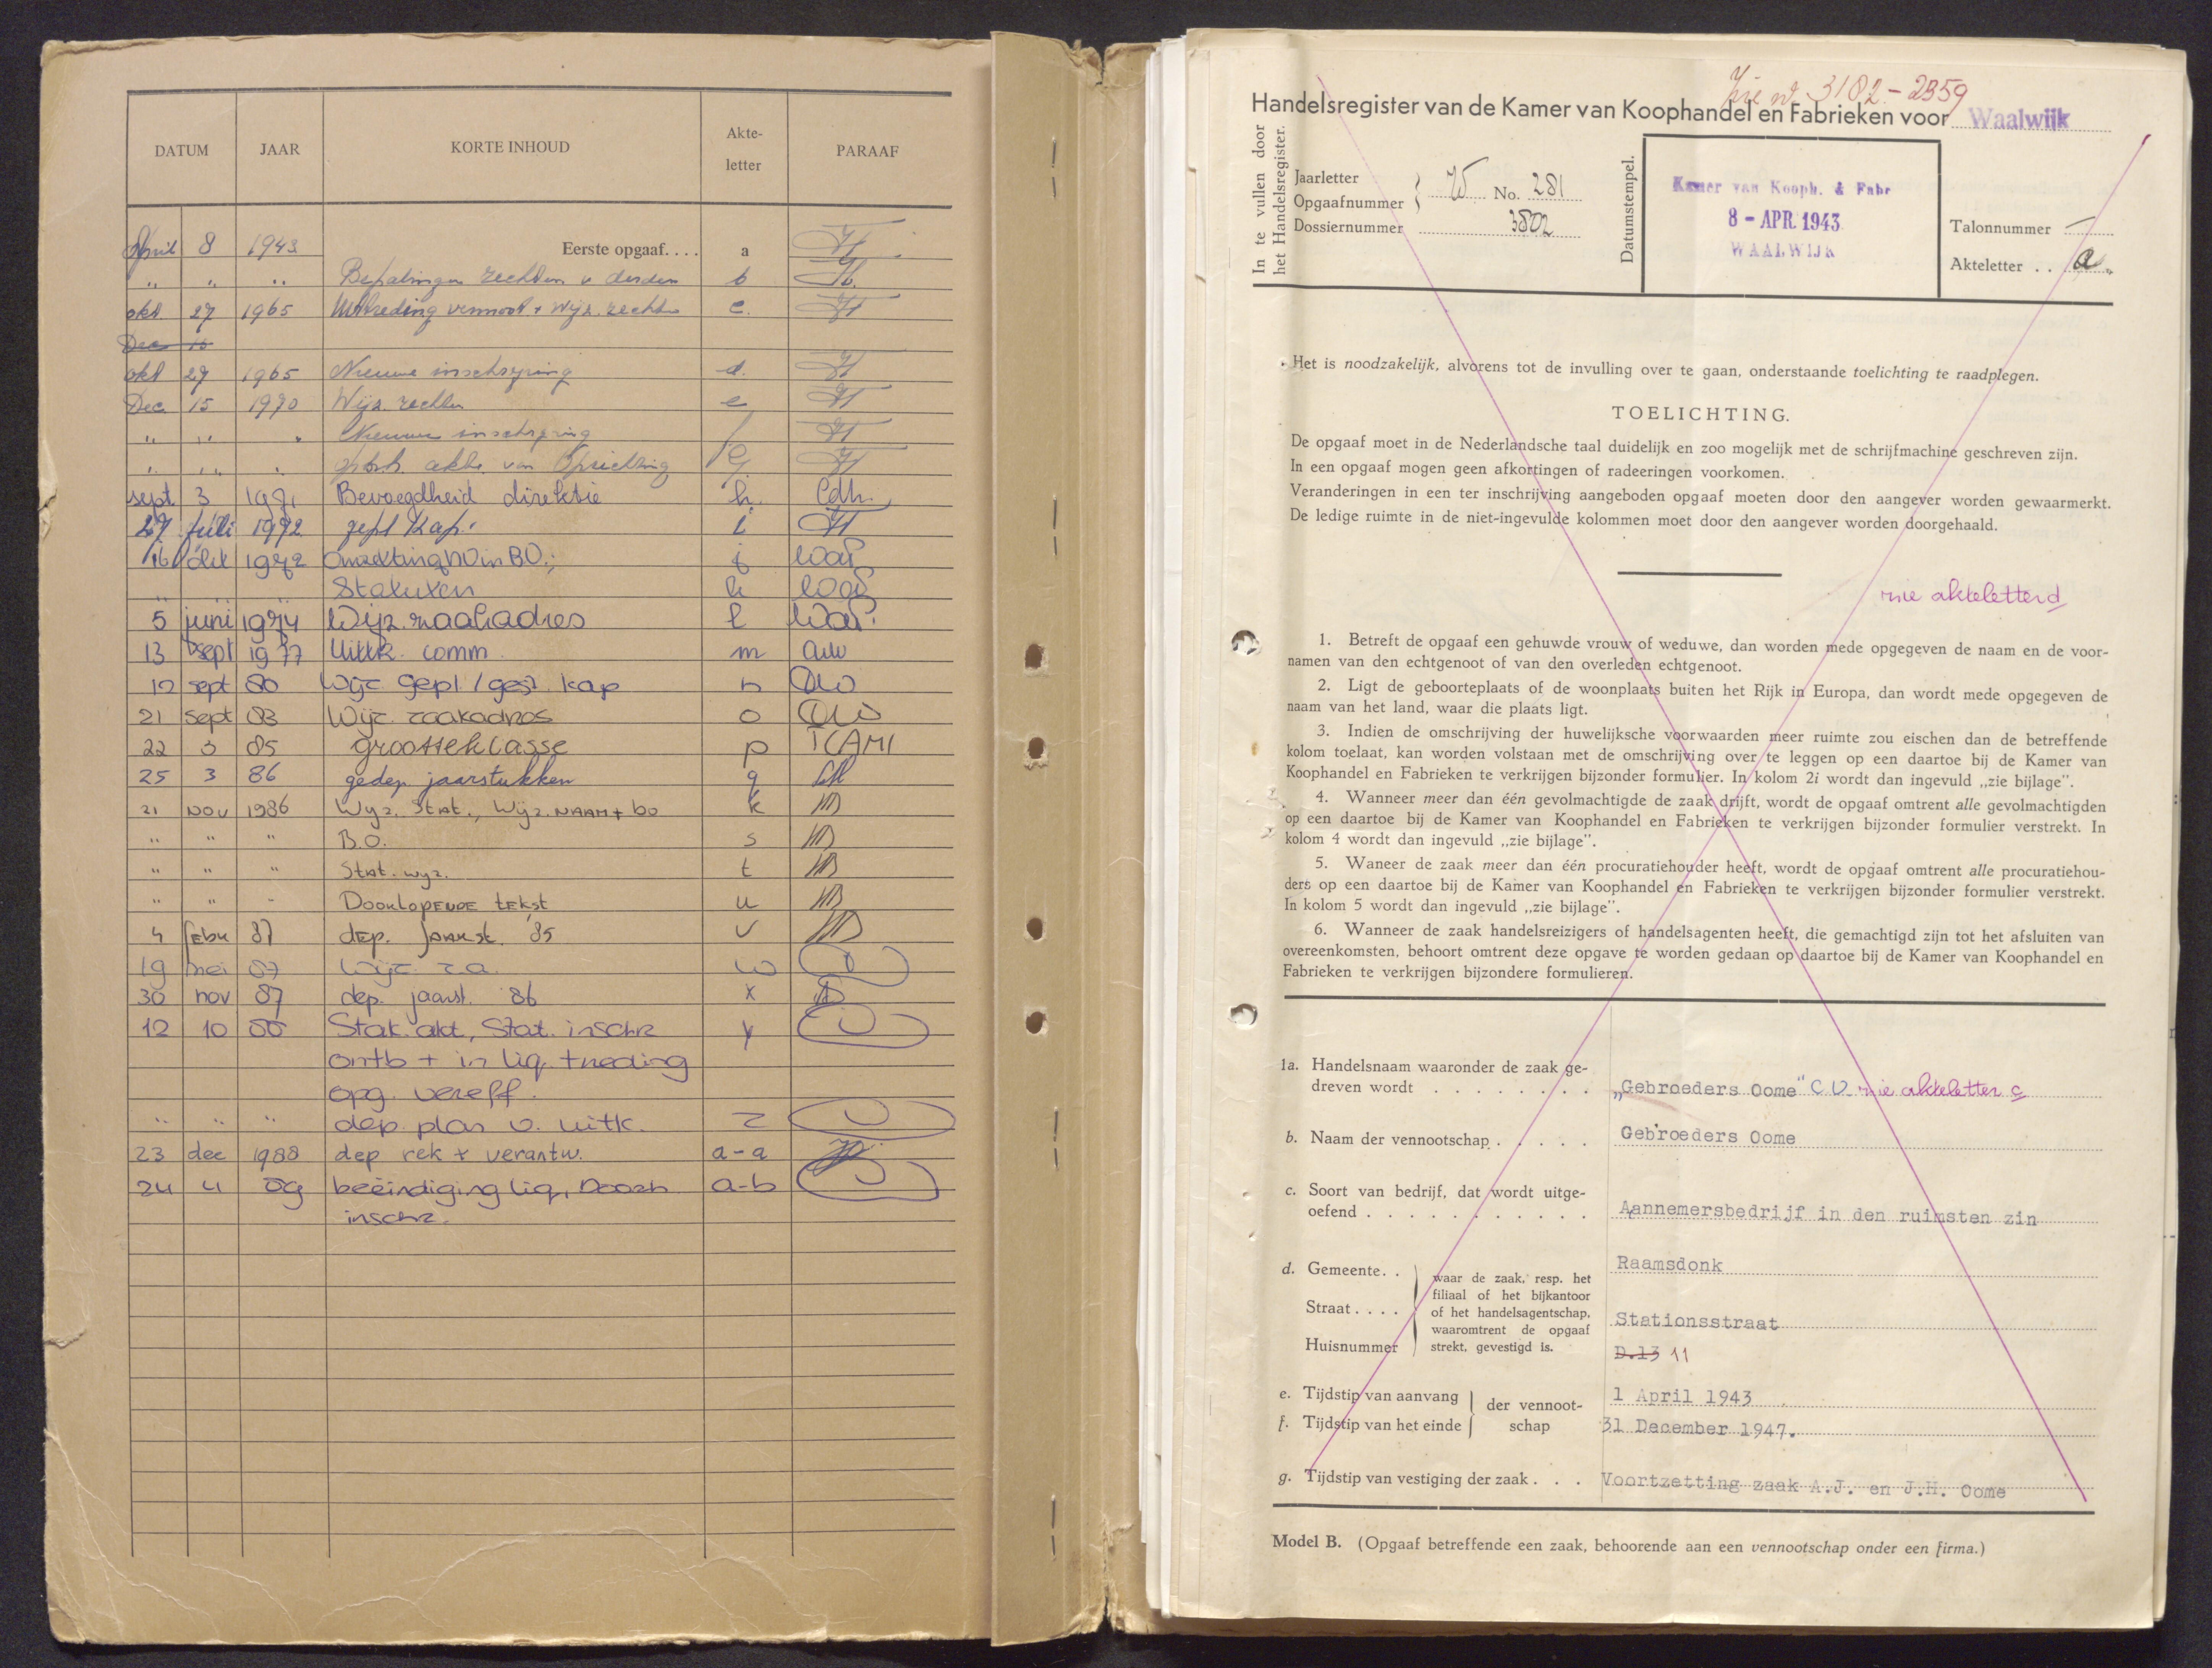 DATUM JAAR KORTE INHOUD Akte-letter PARAAF
April 8 1943 Eerste opgaaf.... a
" " " Bepalingen rechten v derden b
okt 27 1965 Uittreding vennoot + wijz. rechten c.
Dec 15
okt 27 1965 Nieuwe inschrijving d.
Dec. 15 1970 Wijz. rechten e
" " " Nieuwe inschrijving f
" " " akte van Oprichting g
sept 3 1971 Bevoegdheid direktie h.
27 juli 1972 gepl. Kap. i
16 okt 1972 Omzetting NV in BV; j
" " " Statuten k
5 juni 1974 Wijz. zaakadres l
13 sept 1977 Uittr. comm. m
12 sept 80 Wijz. gepl / gest. kap n
21 sept 83 Wijz. zaakadres o
22 3 85 grootteklasse p
25 3 86 gedep. jaarstukken q
21 NOV 1986 Wyz. Stat., Wijz. NAAM + bo
" " " B.O. s
" " " Stat. wyz. t
" " " DOORLOPENDE TEKST u
4 febr 87 dep. JAARST. '85 v
19 mei 87 Wijz. z.a. w
30 nov 87 dep. jaarst. '86 x
12 10 88 Stak. akt, Stat. inschr y
ontb + in liq. + neding
opg. vereff.
" " " dep. plan v. uitk. z
23 dec 1988 dep rek + verantw. a-a
24 4 89 beëindiging liq, Doorh a-b
inschr.
Zie no 3182 - 2359
Handelsregister van de Kamer van Koophandel en Fabrieken voor Waalwijk
In te vullen door
het Handelsregister.
Jaarletter
Opgaafnummer W No. 281
Dossiernummer 3802
Datumstempel.
Kamer van Kooph. & Fabr
8 - APR. 1943
WAALWIJK
Talonnummer —
Akteletter . . a
Het is noodzakelijk, alvorens tot de invulling over te gaan, onderstaande toelichting te raadplegen.
TOELICHTING.
De opgaaf moet in de Nederlandsche taal duidelijk en zoo mogelijk met de schrijfmachine geschreven zijn.
In een opgaaf mogen geen afkortingen of radeeringen voorkomen.
Veranderingen in een ter inschrijving aangeboden opgaaf moeten door den aangever worden gewaarmerkt.
De ledige ruimte in de niet-ingevulde kolommen moet door den aangever worden doorgehaald.
zie akteletter d
1. Betreft de opgaaf een gehuwde vrouw of weduwe, dan worden mede opgegeven de naam en de voor-
namen van den echtgenoot of van den overleden echtgenoot.
2. Ligt de geboorteplaats of de woonplaats buiten het Rijk in Europa, dan wordt mede opgegeven de
naam van het land, waar die plaats ligt.
3. Indien de omschrijving der huwelijksche voorwaarden meer ruimte zou eischen dan de betreffende
kolom toelaat, kan worden volstaan met de omschrijving over te leggen op een daartoe bij de Kamer van
Koophandel en Fabrieken te verkrijgen bijzonder formulier. In kolom 2i wordt dan ingevuld „zie bijlage".
4. Wanneer meer dan één gevolmachtigde de zaak drijft, wordt de opgaaf omtrent alle gevolmachtigden
op een daartoe bij de Kamer van Koophandel en Fabrieken te verkrijgen bijzonder formulier verstrekt. In
kolom 4 wordt dan ingevuld „zie bijlage".
5. Waneer de zaak meer dan één procuratiehouder heeft, wordt de opgaaf omtrent alle procuratiehou-
ders op een daartoe bij de Kamer van Koophandel en Fabrieken te verkrijgen bijzonder formulier verstrekt.
In kolom 5 wordt dan ingevuld „zie bijlage".
6. Wanneer de zaak handelsreizigers of handelsagenten heeft, die gemachtigd zijn tot het afsluiten van
overeenkomsten, behoort omtrent deze opgave te worden gedaan op daartoe bij de Kamer van Koophandel en
Fabrieken te verkrijgen bijzondere formulieren.
1a. Handelsnaam waaronder de zaak ge-
dreven wordt . . . . . . . . „Gebroeders Oome" C.V. zie akteletter c
b. Naam der vennootschap . . . . . Gebroeders Oome
c. Soort van bedrijf, dat wordt uitge-
oefend . . . . . . . . . . . Aannemersbedrijf in den ruimsten zin
d. Gemeente. . Raamsdonk
Straat . . . . Stationsstraat
Huisnummer D.13 11
waar de zaak, resp. het
filiaal of het bijkantoor
of het handelsagentschap,
waaromtrent de opgaaf
strekt, gevestigd is.
e. Tijdstip van aanvang der vennoot- 1 April 1943
f. Tijdstip van het einde schap 31 December 1947.
g. Tijdstip van vestiging der zaak . . . Voortzetting zaak A.J. en J.H. Oome
Model B. (Opgaaf betreffende een zaak, behoorende aan een vennootschap onder een firma.)